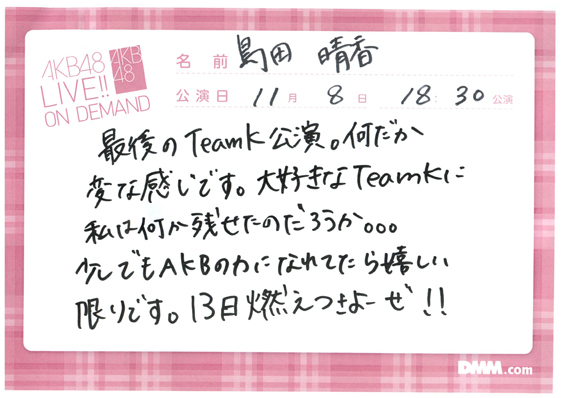 AKB48
LIVE!!
ON DEMAND
AKB
48
名前 島田 晴香
公演日 11月 8日 18:30公演
最後のTeamK公演。何だか
変な感じです。大好きなTeamKに
私は何か残せたのだろうか。。。
少しでもAKBの力になれてたら嬉しい
限りです。13日燃えつきよーぜ!!
DMM.com